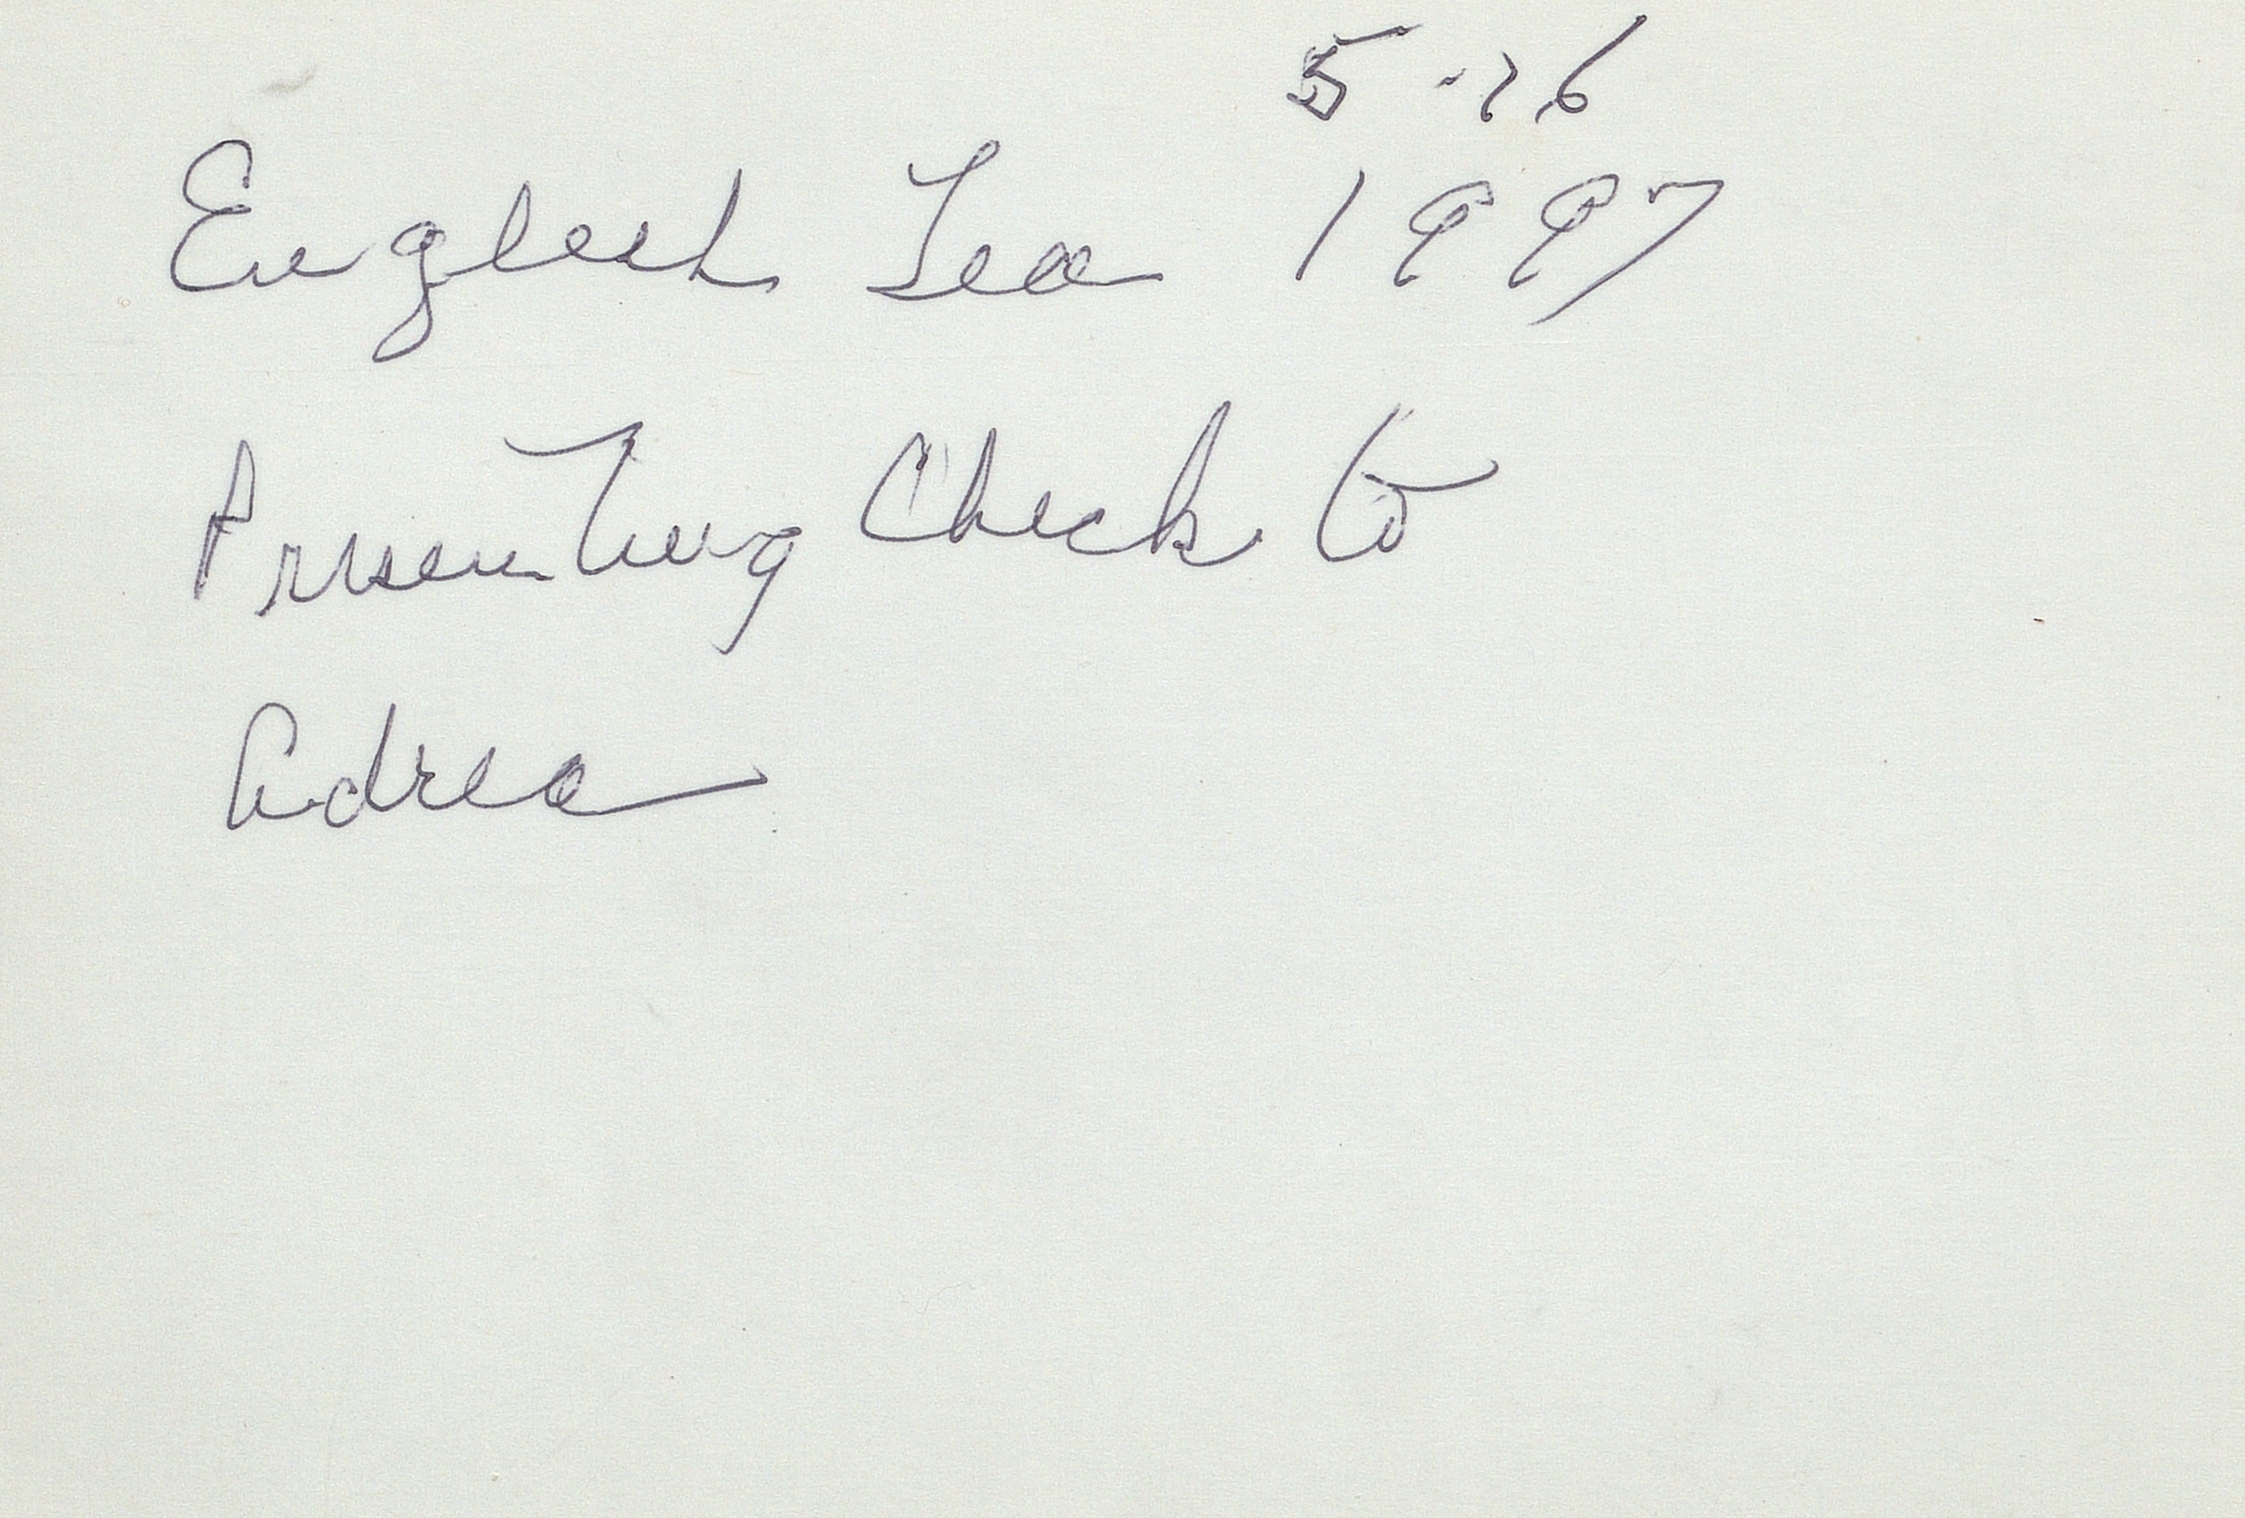 5-16
English Tea 1997
Presenting Check to
Adrea